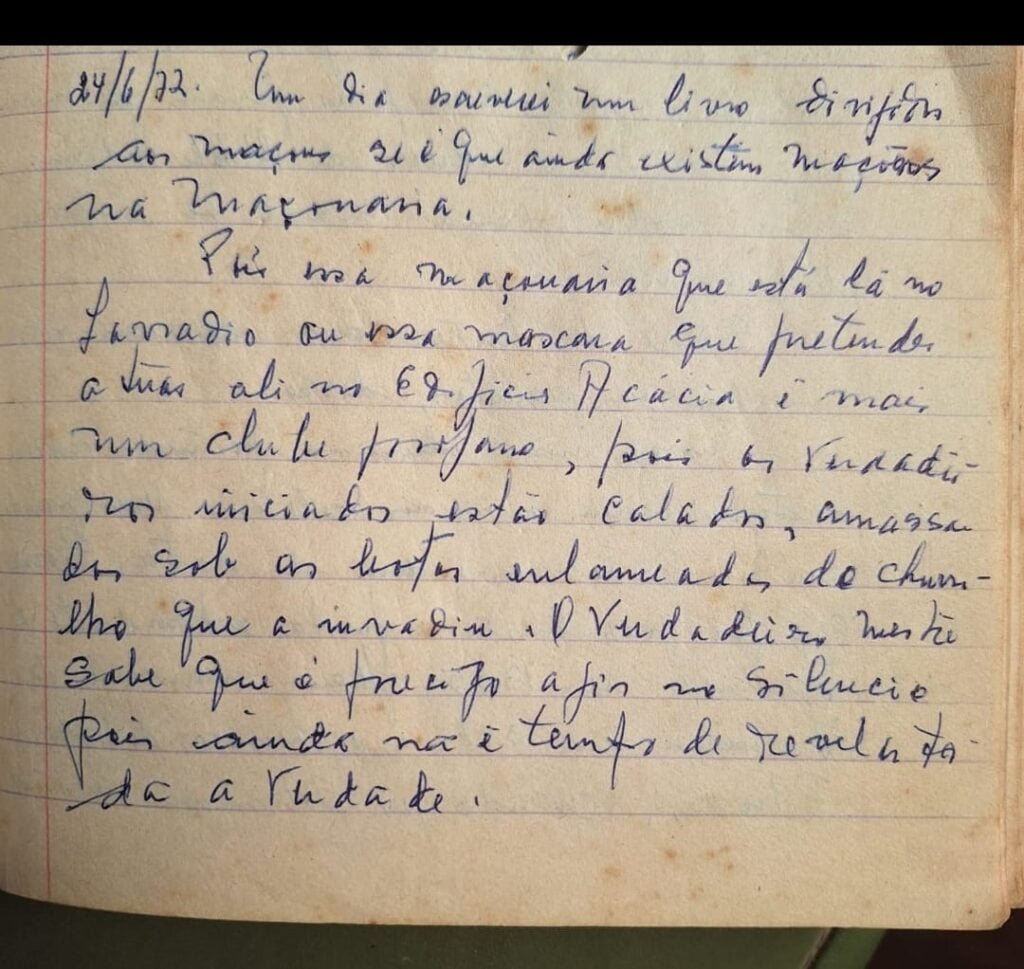 24/6/72. Um dia escreverei um livro dirigido
aos maçons se é que ainda existem maçons
na Maçonaria.
Pois essa maçonaria que está lá no
Lavradio ou essa mascara que pretende
atuar ali no Edificio Acácia é mais
um clube profano, pois os verdadei-
ros iniciados estão calados, amassa
dos sob as botas enlameadas do
que a invadiu. O Verdadeiro mestre
sabe que é preciso agir no silencio
pois ainda não é tempo de revelar to-
da a verdade.